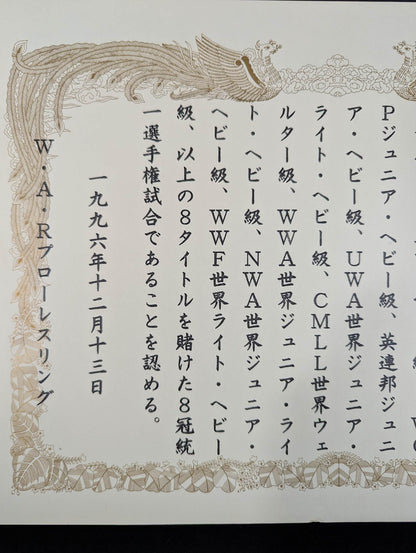 Pジュニア・ヘビー級、英連邦ジュニ
ア・ヘビー級、UWA世界ジュニア・
ライト・ヘビー級、CMLL世界ウェ
ルター級、WWA世界ジュニア・ライ
ト・ヘビー級、NWA世界ジュニア・
ヘビー級、WWF世界ライト・ヘビー
級、以上の8タイトルを賭けた8冠統
一選手権試合であることを認める。
一九九六年十二月十三日
W・A・Rプローレスリング